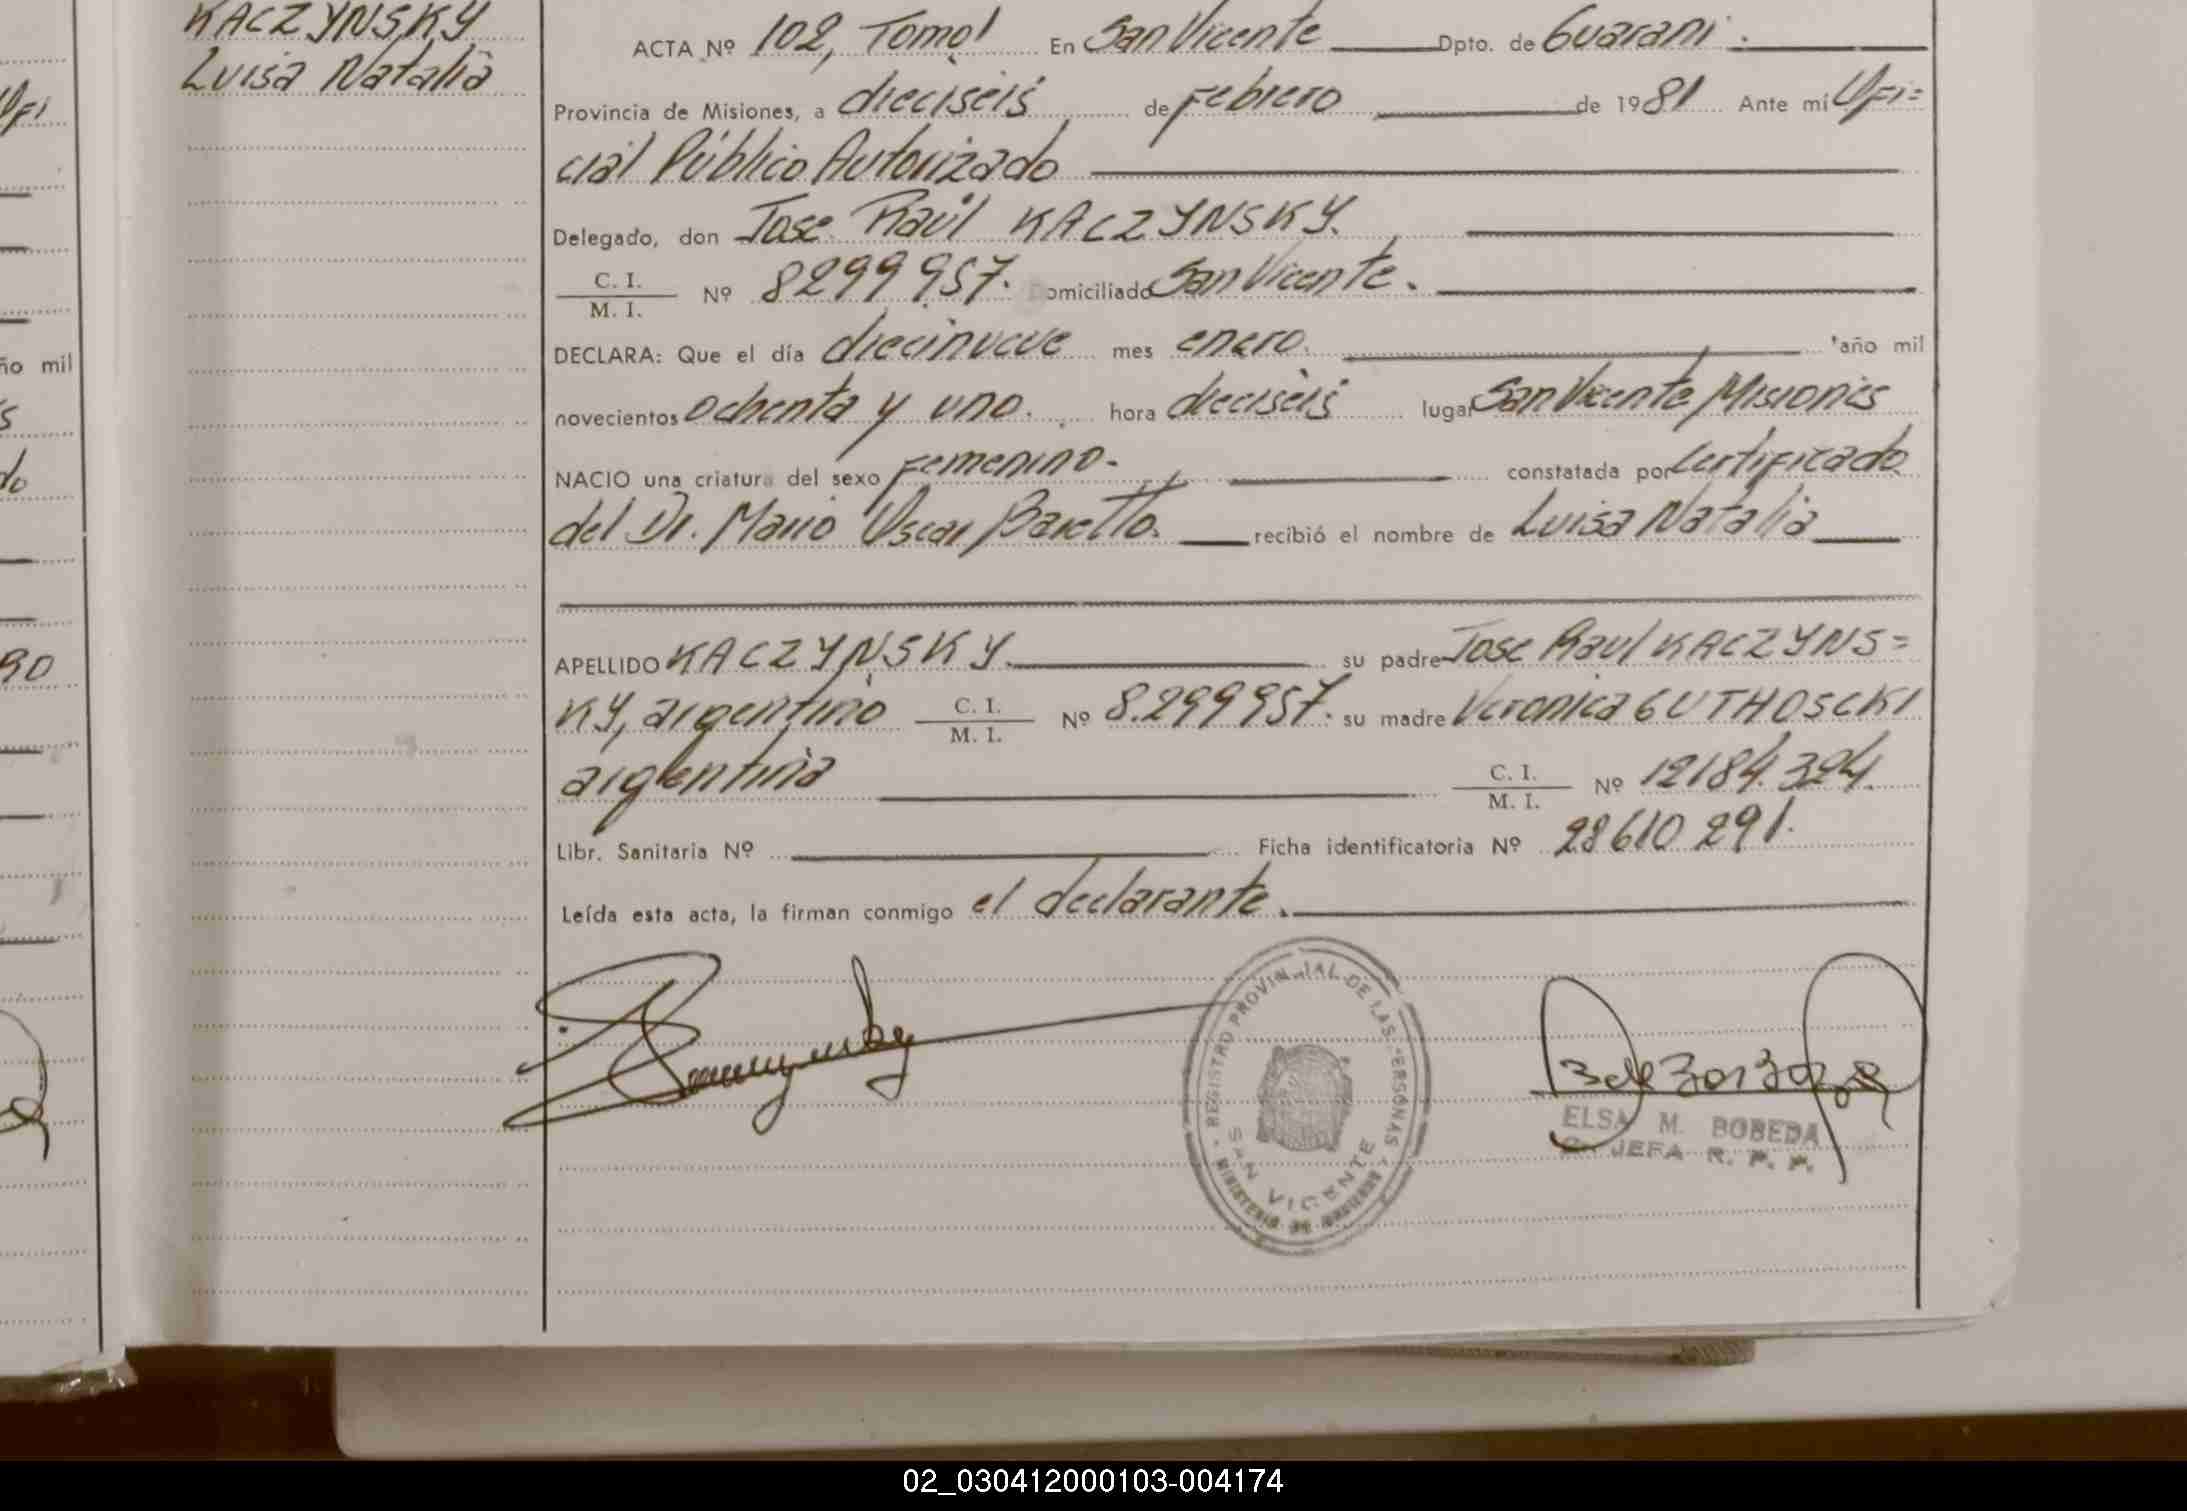 KACZYNSKY
Luisa Natalia
ACTA Nº 102, Tomo I En San Vicente Dpto. de Guarani.
Provincia de Misiones, a dieciseis de Febrero de 1981 Ante mí Ofi=
cial Público Autorizado
Delegado, don Jose Raúl KACZYNSKY.
C. I.
M. I. Nº 8299957. Domiciliado San Vicente.
DECLARA: Que el día diecinueve mes enero. año mil
novecientos ochenta y uno. hora dieciseis lugar San Vicente, Misiones
NACIO una criatura del sexo Femenino. constatada por certificado
del Dr. Mario Oscar Baretto. recibió el nombre de Luisa Natalia
APELLIDO KACZYNSKY. su padre Jose Raul KACZYNS=
KY, argentino C. I.
M. I. Nº 8.299957. su madre Veronica GUTHOSCKI
argentina C. I.
M. I. Nº 12184.304.
Libr. Sanitaria Nº Ficha identificatoria Nº 28610291.
Leída esta acta, la firman conmigo el declarante.
REGISTRO PROVINCIAL DE LAS PERSONAS
SAN VICENTE
MINISTERIO DE
ELSA M. BOBEDA
JEFA R. P. P.
ño mil
02_030412000103-004174